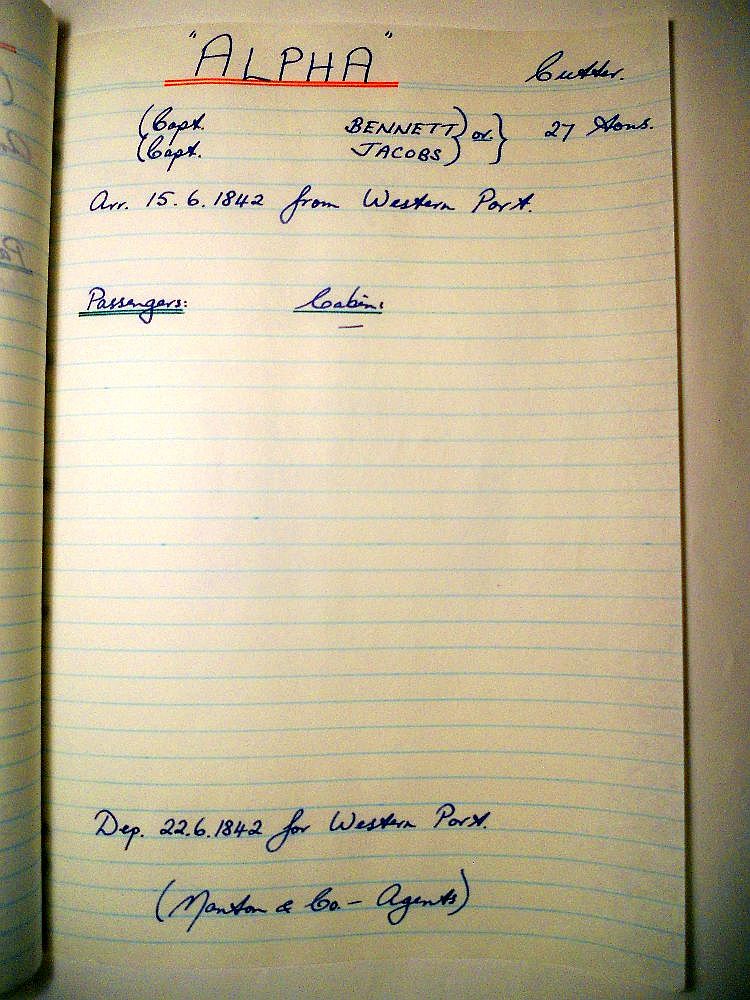 "ALPHA" Cutter.
(Capt. BENNETT) or } 27 tons.
(Capt. JACOBS)
Arr. 15.6.1842 from Western Port.
Passengers: Cabin:
—
Dep. 22.6.1842 for Western Port.
(Manton & Co. — Agents)